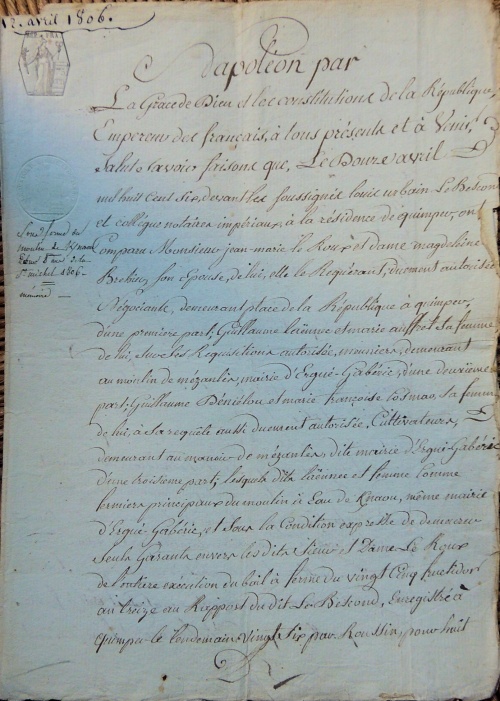 12. avril 1806.
Napoléon par
La Grace de Dieu et les constitutions de la République,
Empereur des français, à tous présents et à Venir,
Salut, savoir faisons que, Le Douze avril
mil huit cent six, devant les soussignés Louis urbain Le Bescond
et collègue notaires impériaux, à la résidence de quimper, ont
Comparu Monsieur jean-marie Le Roux et dame magdelaine
son Epouse, de lui, elle le Requérant, duement autorisée
Négociants, demeurant place de la République à quimper,
d'une première part; Guillaume Lizïenne et marie sa femme
de lui, sur ses Requisitions autorisée, meuniers, demeurant
au moulin de mézanlès, mairie d'Ergué-Gabéric, d'une deuxième
part; Guillaume et marie françoise sa femme
de lui, à sa requête aussi duement autorisée, Cultivateurs,
demeurant au manoir de mézanlès dite mairie d'Ergué-Gabéric
d'une troisième part; lesquels dits et femme Comme
fermiers principaux du moulin à Eau de même mairie
d'Ergué-Gabéric, et Sous la Condition expresse de demeurer
Seuls Garants envers les dits Sieur et Dame Le Roux
de l'entière exécution du bail à ferme du vingt Cinq fructidor
an treize au Rapport du dit Le Bescond, Enregistré à
quimper le lendemain vingt Six par Roussin, pour huit
Sous ferme du
moulin de
pour
St michel 1806.
mémoire